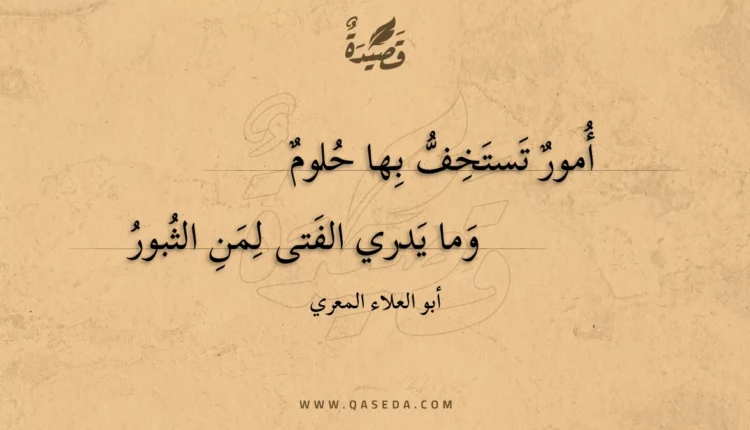 قَصِيْدَةٌ
أُمورٌ تَستَخِفُّ بِها حُلومٌ
وَما يَدري الفَتى لِمَنِ الثُبورُ
أبو العلاء المعري
WWW.QASEDA.COM